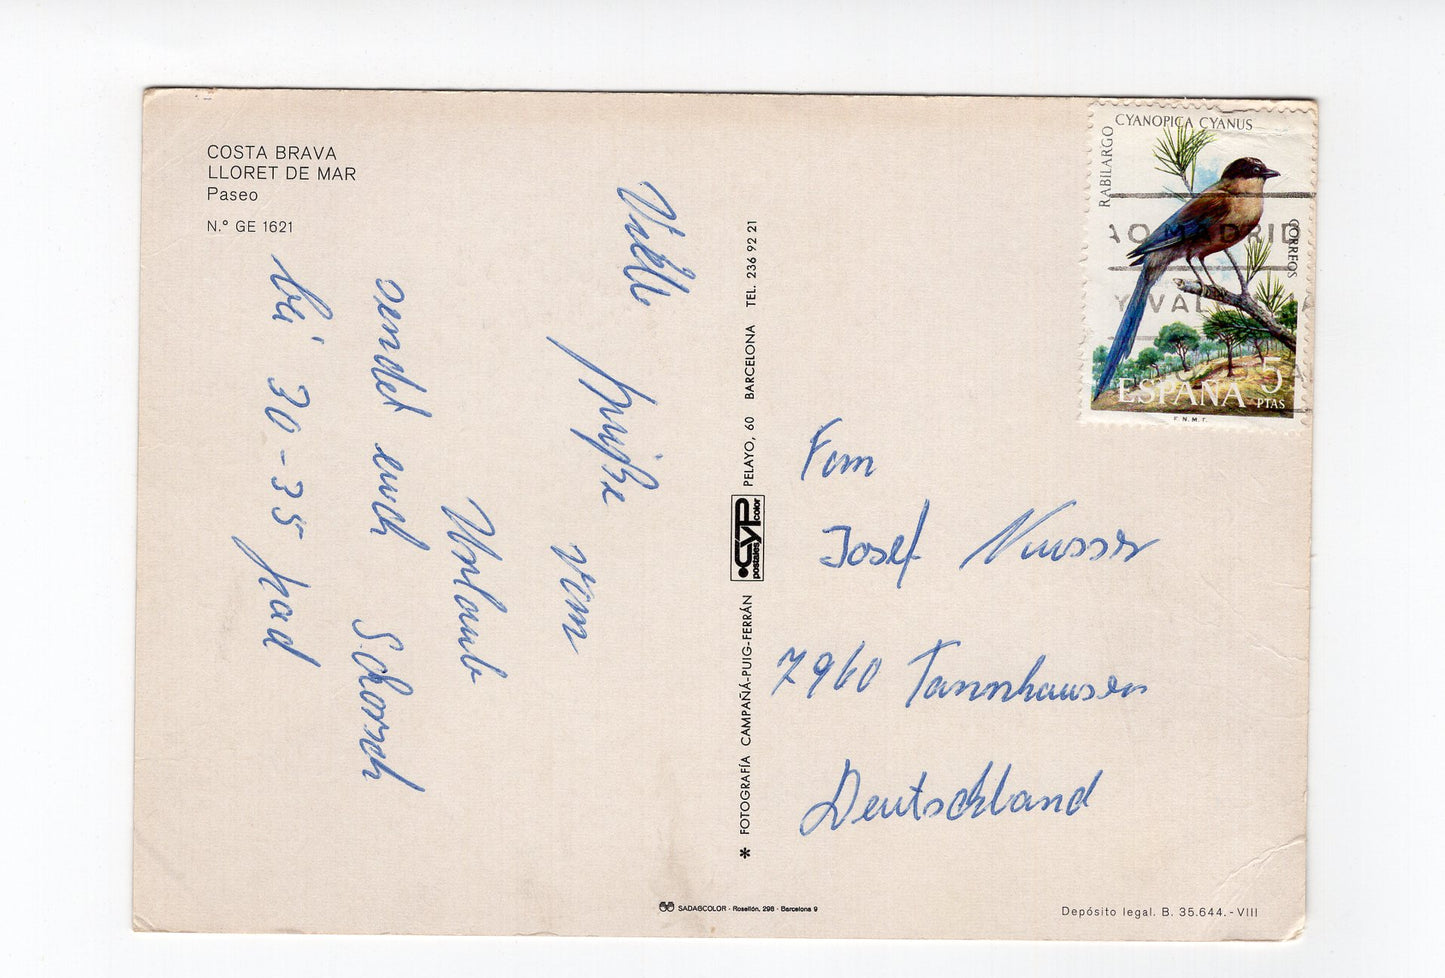 COSTA BRAVA
LLORET DE MAR
Paseo
N.° GE 1621
vom
Urlaub
sendet euch Schorsch
bei 30-35 Grad
* FOTOGRAFÍA CAMPAÑÁ-PUIG-FERRÁN
CYP
postales color
PELAYO, 60 BARCELONA TEL. 236 92 21
CYANOPICA CYANUS
RABILARGO
CORREOS
ESPAÑA 5
PTAS
F.N.M.T.
MADRID
Fam
Josef
7960 Tannhausen
Deutschland
SADAGCOLOR - Rosellón, 298 - Barcelona 9
Depósito legal. B. 35.644.-VIII